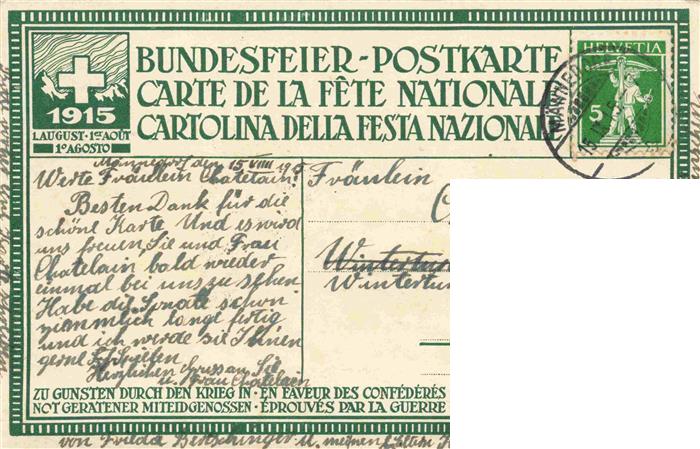 BUNDESFEIER-POSTKARTE
CARTE DE LA FÊTE NATIONAL
CARTOLINA DELLA FESTA NAZIONAL
1915
1. AUGUST · 1ER AOÛT
1º AGOSTO
HELVETIA
5
Männedorf den 15 VIII 19
Werte Fräulein Chatelain!
Besten Dank für die
schöne Karte. Und es wird
uns freuen, Sie und Frau
Chatelain bald wieder
einmal bei uns zu sehen
Habe die Sonate schon
ziemmlich lange fertig
und ich werde sie Ihnen
gerne
Herzlichen Gruss an Sie
u. Frau Chatelain
von Frieda Bertschinger u. meinen Eltern
Fräulein
Winterthu
Winterthu
ZU GUNSTEN DURCH DEN KRIEG IN · EN FAVEUR DES CONFÉDÉRÉS
NOT GERATENER MITEIDGENOSSEN · ÉPROUVÉS PAR LA GUERRE